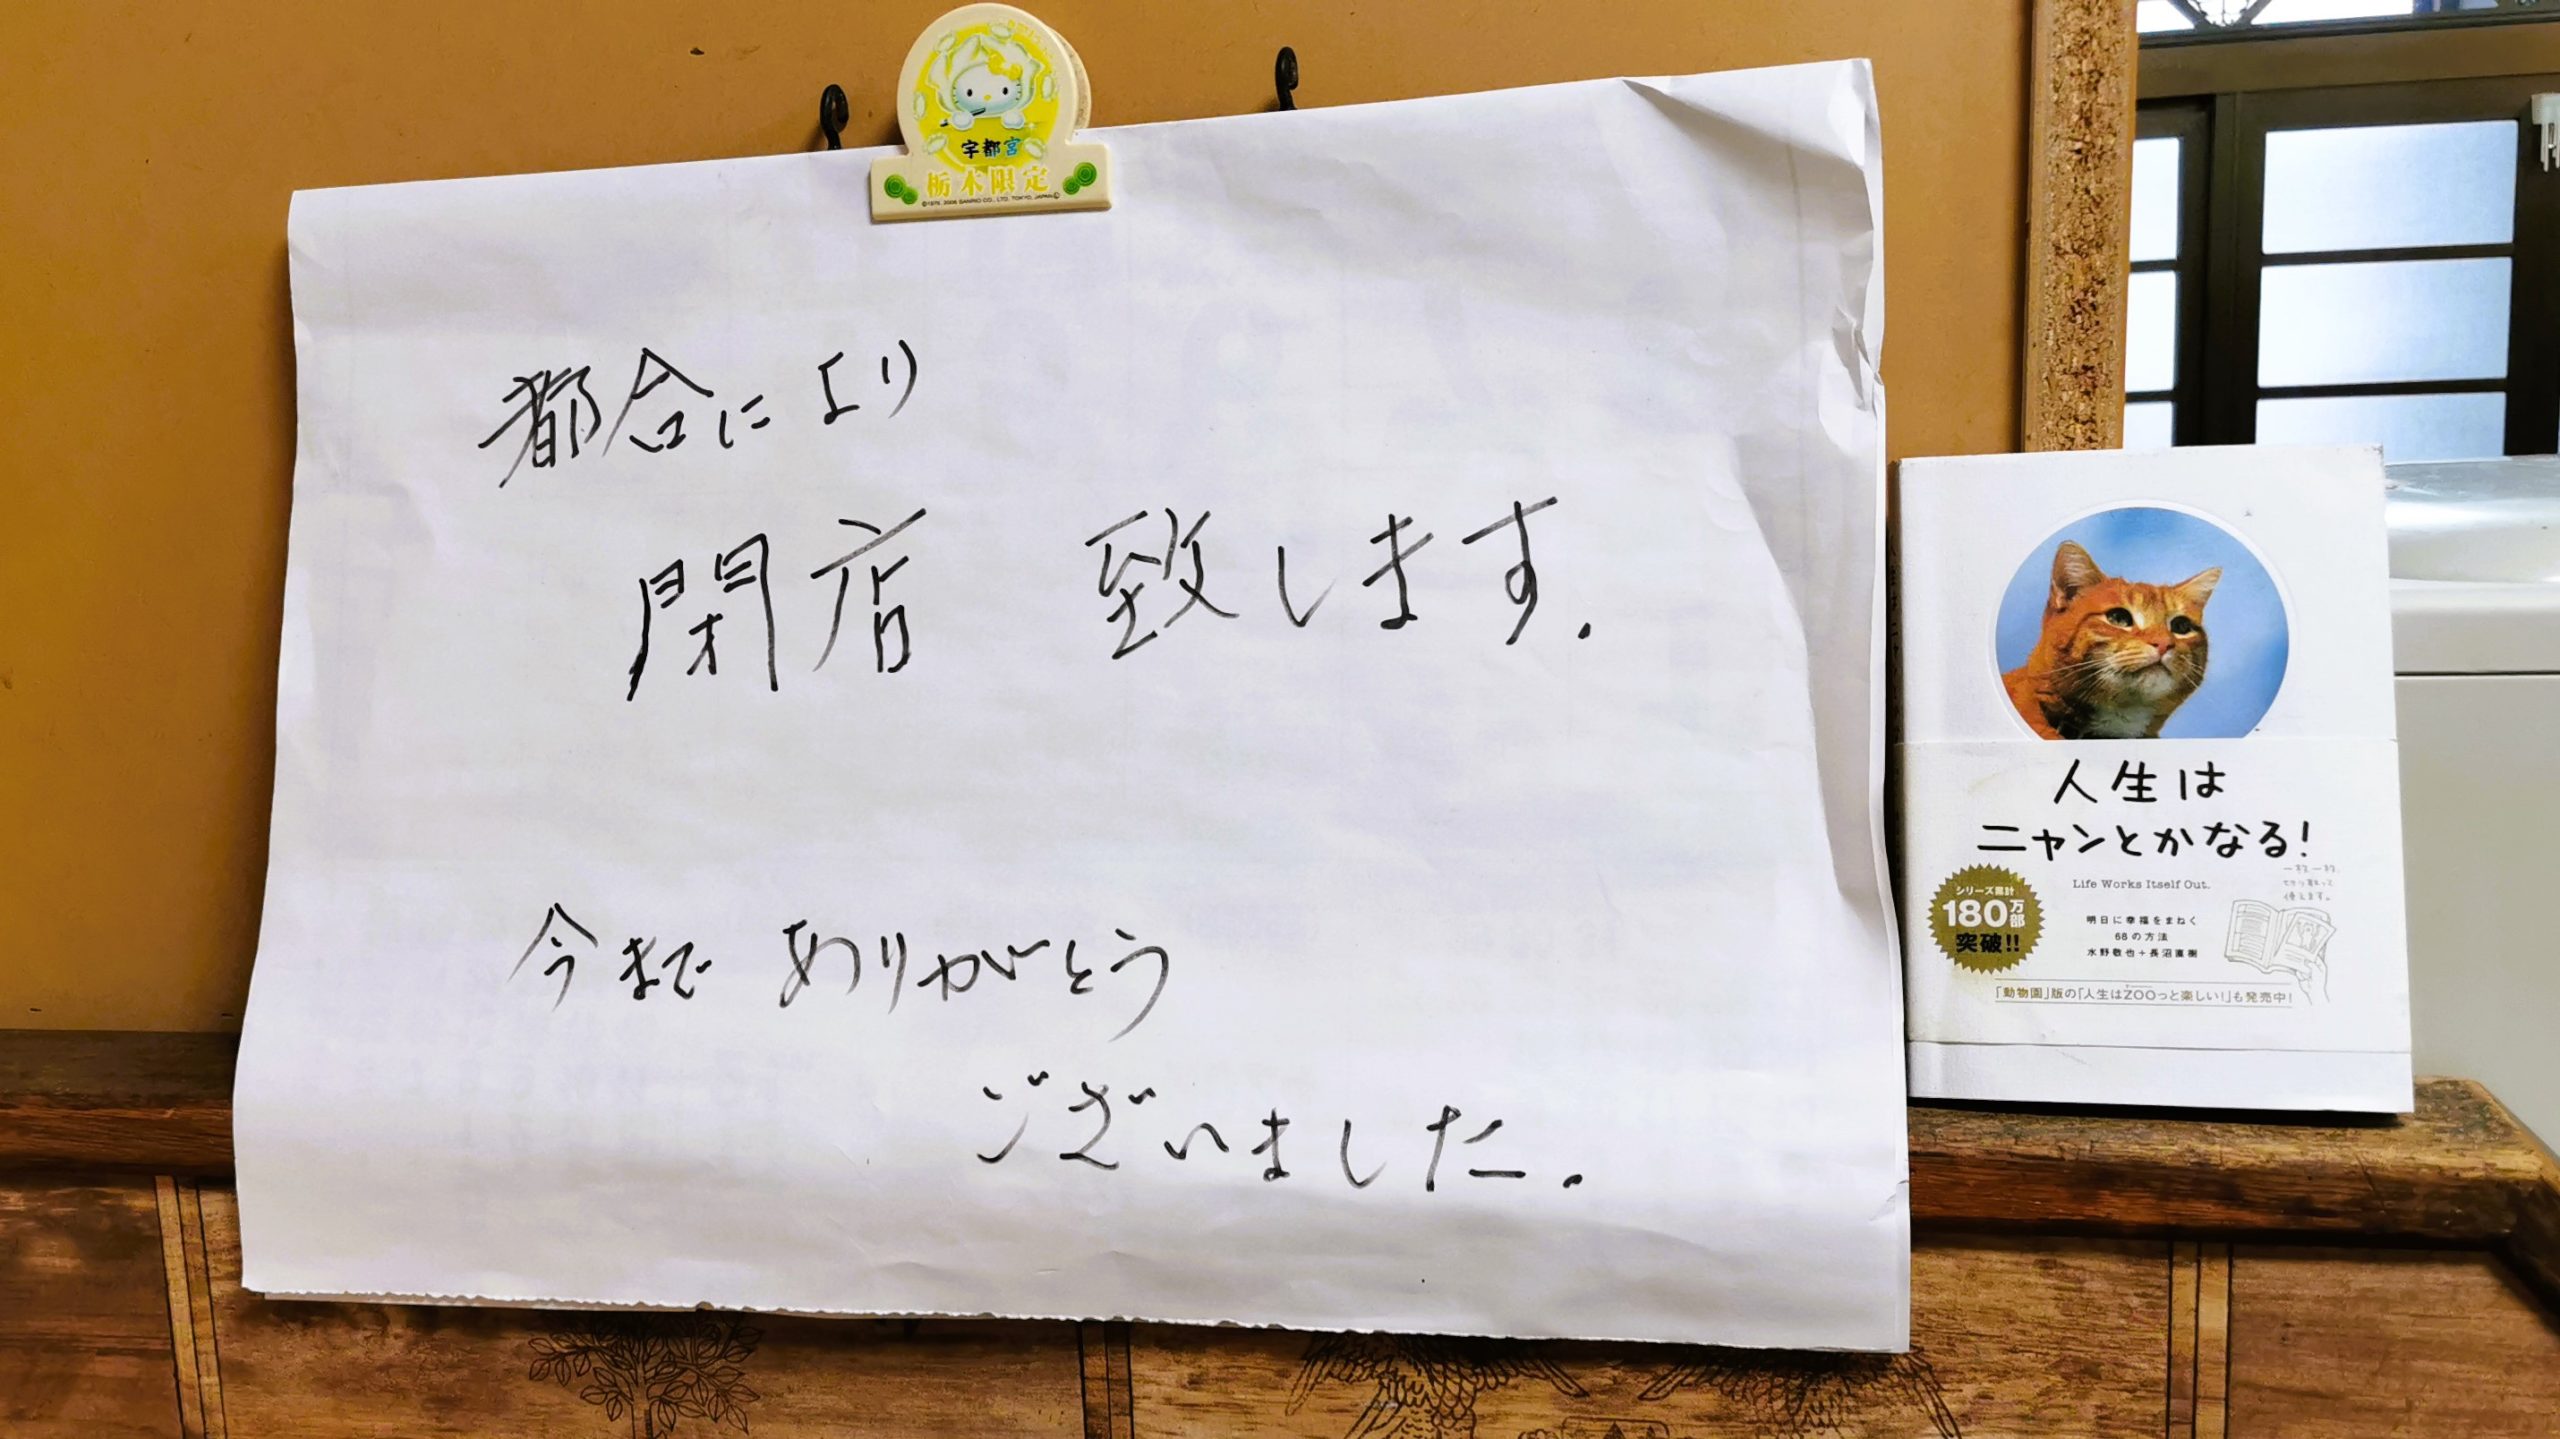 宇都宮
栃木限定
©1976, 2006 SANRIO CO., LTD. TOKYO, JAPAN
都合により
閉店 致します.
今まで ありがとう
ございました.
人生は
ニャンとかなる!
Life Works Itself Out.
一枚一枚、
切り取って
使えます。
シリーズ累計
180万部
突破!!
明日に幸福をまねく
68の方法
水野敬也+長沼直樹
「動物園」版の「人生はZOOっと楽しい!」も発売中!